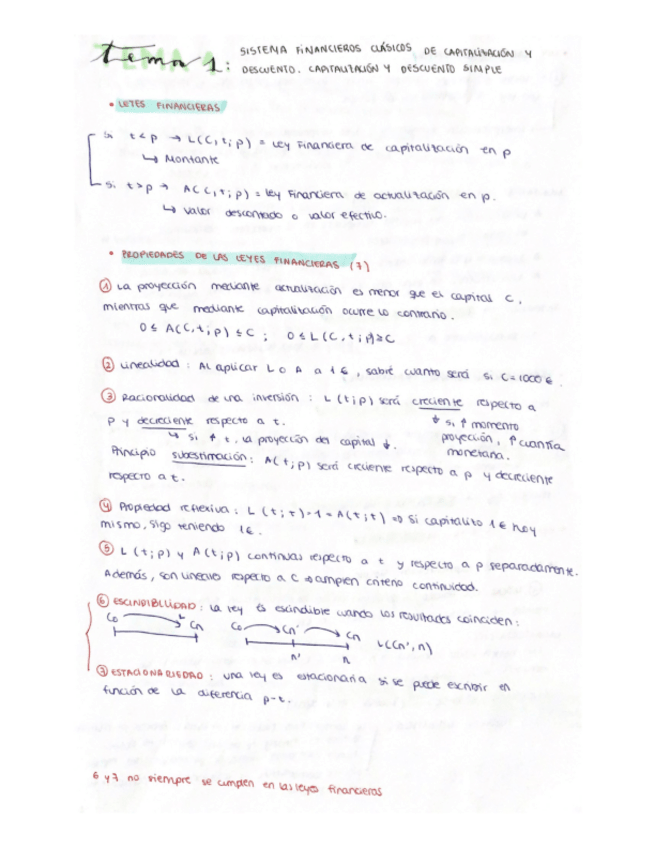 tema 1: SISTEMA FINANCIEROS CLÁSICOS DE CAPITALIZACIÓN Y
DESCUENTO. CAPITALIZACIÓN Y DESCUENTO SIMPLE
• LEYES FINANCIERAS
Si t < p → L(C,t;p) = Ley Financiera de capitalización en p
↳ Montante
Si t > p → A(C,t;p) = Ley Financiera de actualización en p.
↳ Valor descontado o valor efectivo.
• PROPIEDADES DE LAS LEYES FINANCIERAS (7)
① La proyección mediante actualización es menor que el capital C,
mientras que mediante capitalización ocurre lo contrario.
0 ≤ A(C,t;p) ≤ C ; 0 ≤ L(C,t;p) ≥ C
② Linealidad : Al aplicar L o A a 1€, sabré cuanto será si C = 1000 €.
③ Racionalidad de una inversión : L(t;p) será creciente respecto a
p y decreciente respecto a t.
↓ si ↑ momento
proyección, ↑ cuantía
monetaria.
↳ si ↑ t, la proyección del capital ↓.
Principio subestimación : A(t;p) será creciente respecto a p y decreciente
respecto a t.
④ Propiedad reflexiva : L(t;t) = 1 = A(t;t) ⇒ Si capitalizo 1€ hoy
mismo, sigo teniendo 1€.
⑤ L(t;p) y A(t;p) continuas respecto a t y respecto a p separadamente.
Además, son lineales respecto a C ⇒ cumplen criterio continuidad.
⑥ ESCINDIBILIDAD : La ley es escindible cuando los resultados coinciden :
Co L Cn Co Cn' Cn L(Cn', n)
n' n
⑦ ESTACIONARIEDAD : una ley es estacionaria si se puede escribir en
función de la diferencia p-t.
6 y 7 no siempre se cumplen en las leyes financieras